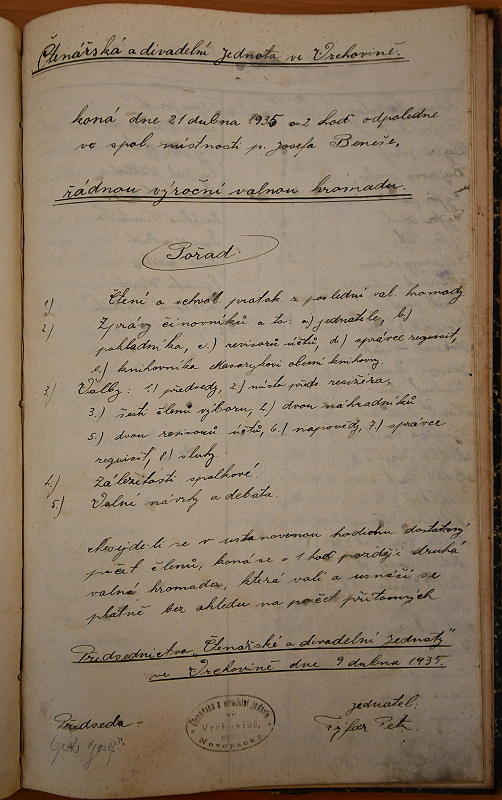 Čtenářská a divadelní jednota ve Vrchovině.
koná dne 21 dubna 1935 o 2 hod odpoledne
ve spol. místnosti p. Josefa Beneše,
řádnou výroční valnou hromadu.
Pořad:
1) Čtení a schvál. protok. z poslední val. hromady
2) Zprávy činovníků a to: a.) jednatele, b.)
pokladníka, c.) revisorů účtů, d.) správce requisit,
e.) knihovníka Masarykovi obecní knihovny.
3) Volby: 1.) předsedy, 2.) místo předs. resižéra,
3.) šesti členů výboru, 4.) dvou náhradníků
5.) dvou revisorů účtů, 6.) napovědy, 7.) správce
requisit, 8.) sluhy.
4.) Záležitosti spolkové.
5.) Volné návrhy a debata.
Nesejde-li se v ustanovenou hodinu dostatečný
počet členů, koná se o 1 hod později druhá
valná hromada, která volí a usnáší se
platně bez ohledu na počet přítomných
Předsednictvo „Čtenářské a divadelní jednoty"
ve Vrchovině dne 9 dubna 1935.
Předseda:
Josef
Čtenářská a divadelní jednota
ve
Vrchovině,
Novopacký
jednatel:
Petr